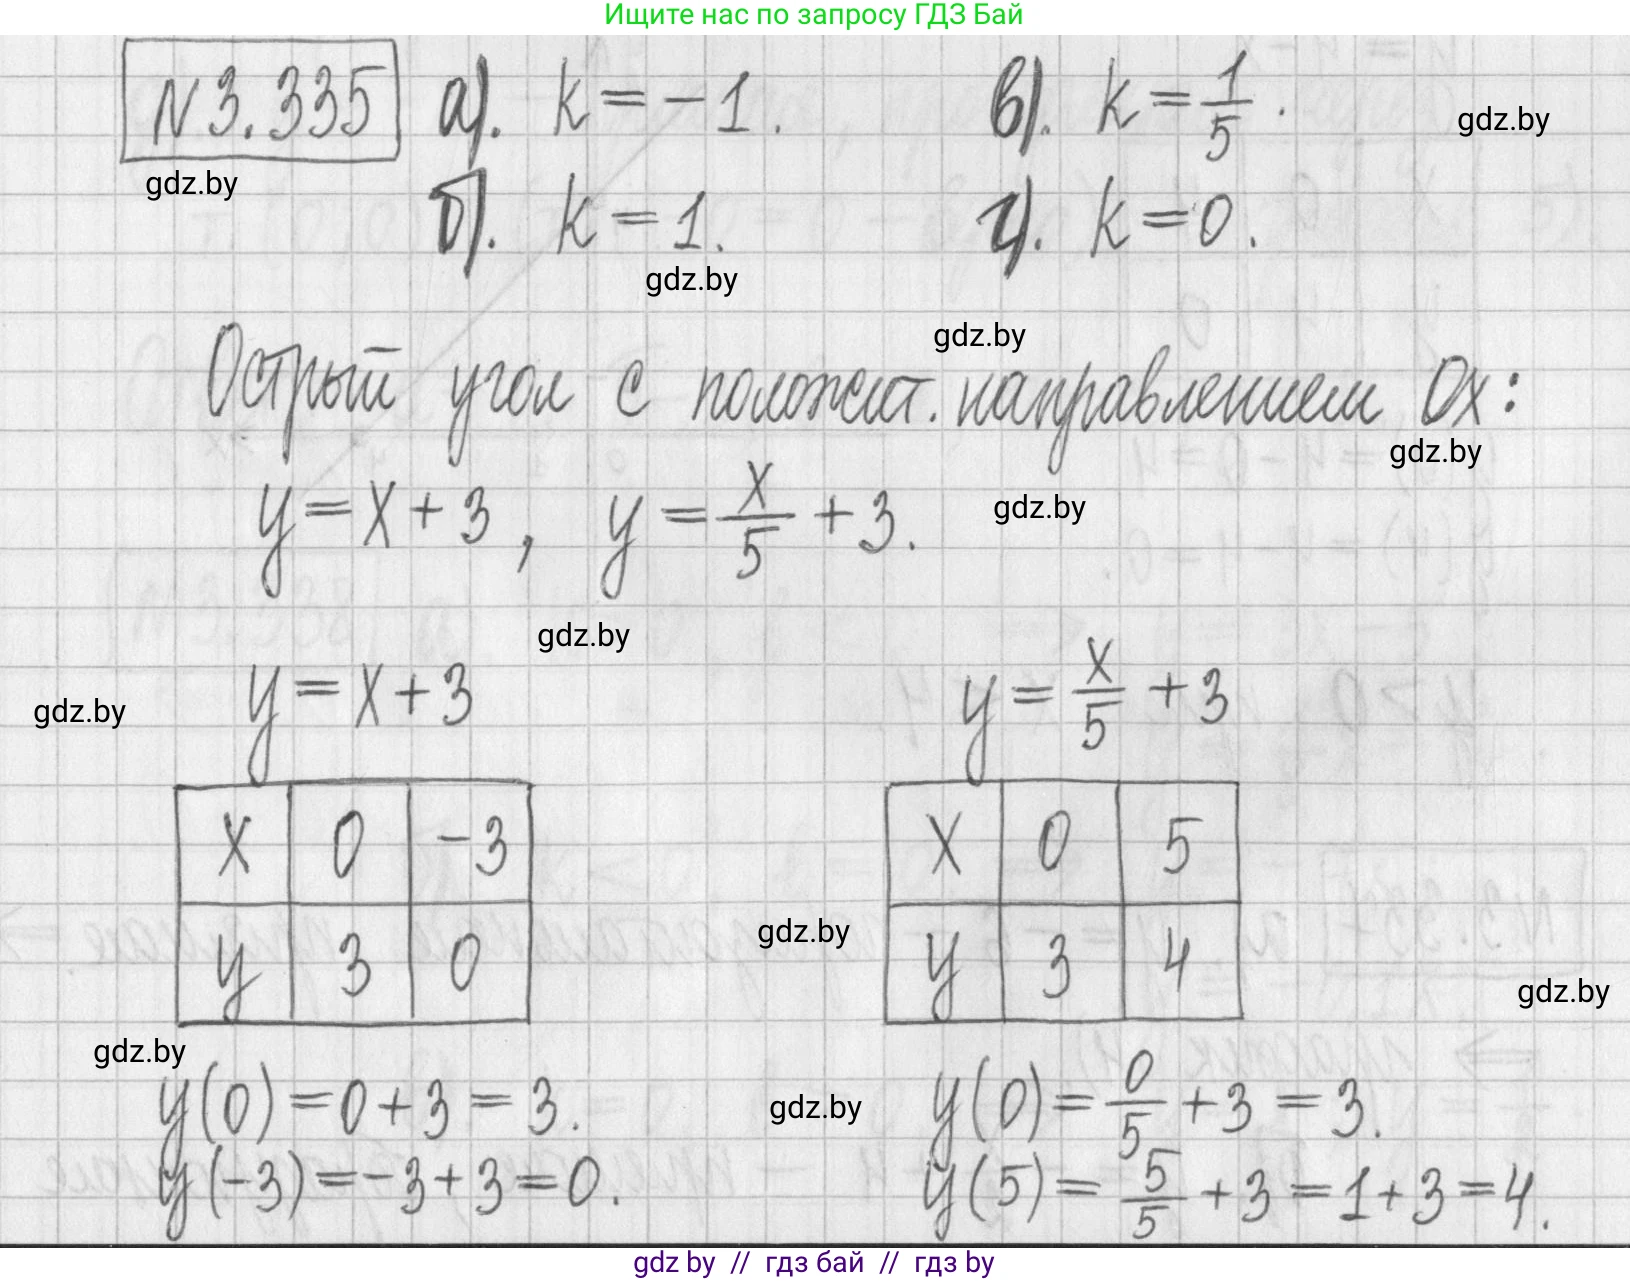 Ищите нас по запросу ГДЗ Бай
N3.335 а). k=-1. в). k=1/5.
gdz.by
gdz.by
б). k=1. г). k=0.
gdz.by
gdz.by
Острый угол с положит. направлением Ox:
gdz.by
y=x+3, y=x/5+3.
gdz.by
gdz.by
y=x+3 y=x/5+3
gdz.by
x 0 -3 x 0 5
y 3 0 y 3 4
gdz.by
gdz.by
gdz.by
y(0)=0+3=3. y(0)=0/5+3=3.
gdz.by
y(-3)=-3+3=0. y(5)=5/5+3=1+3=4.
gdz.by // гдз бай // gdz by